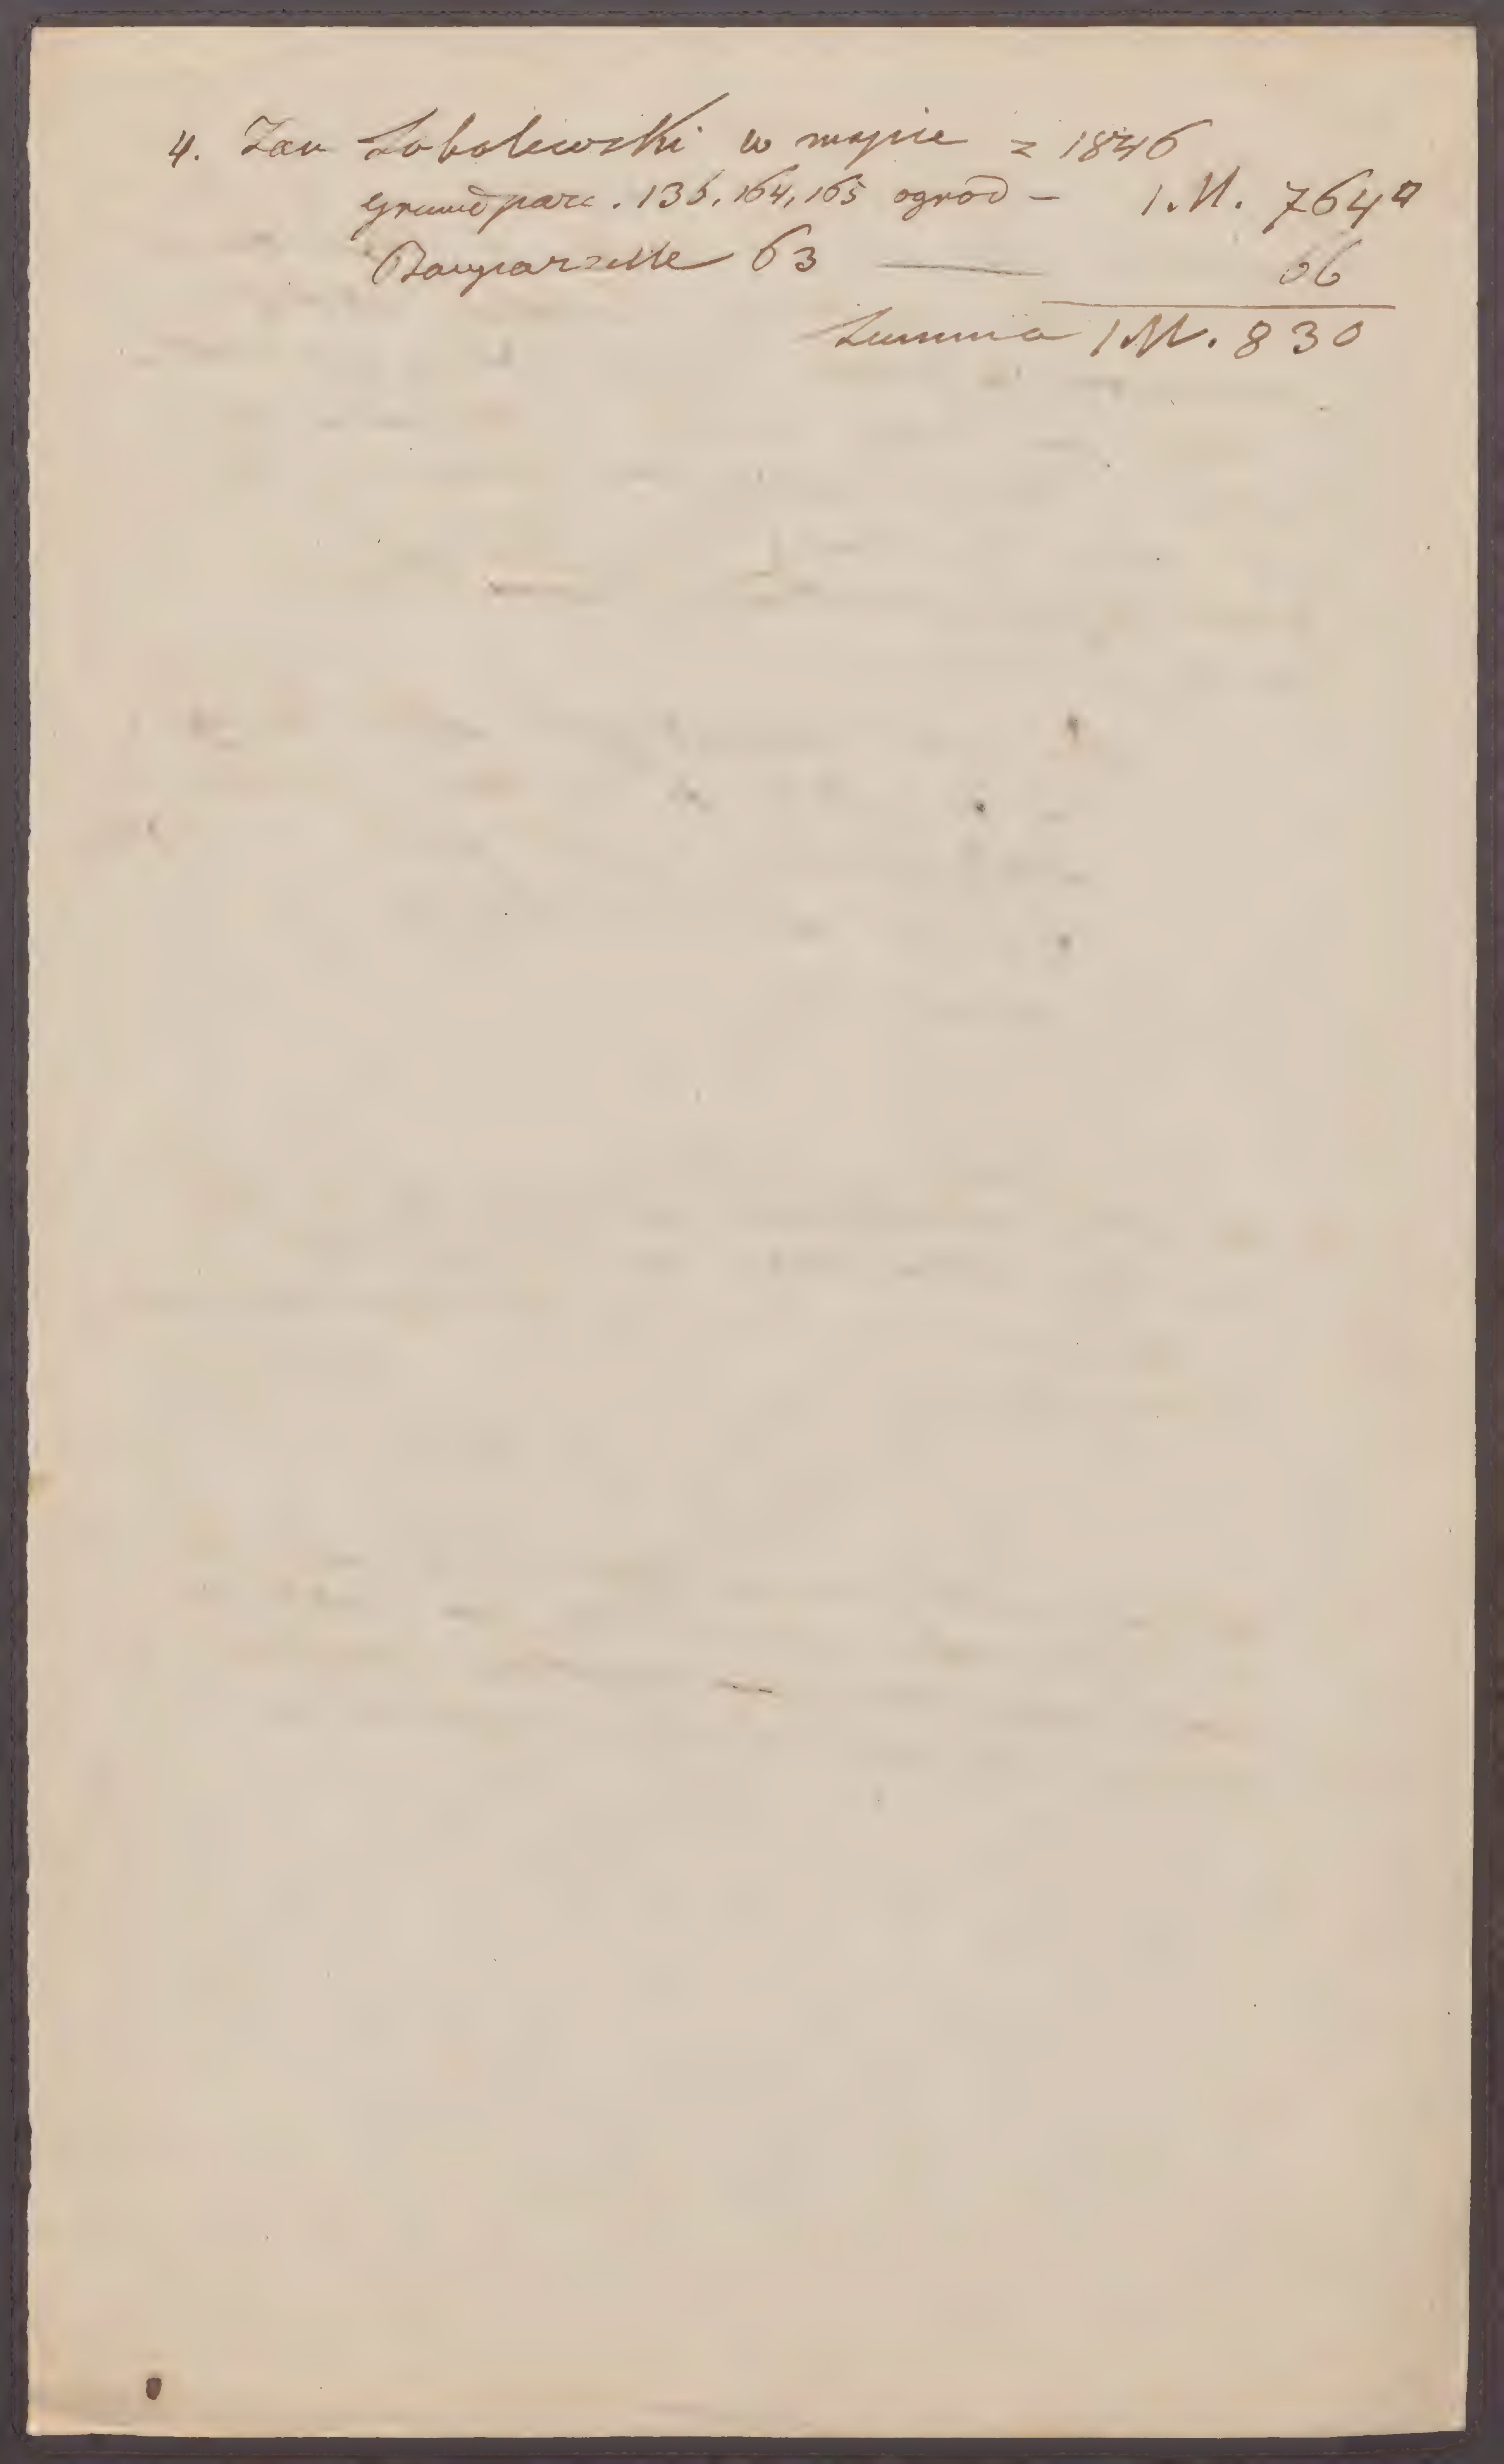 4. Jan Sobolewski w mapie z 1846
Grund parc. 136, 164, 165 ogrod — 1. M. 764□
Bauparzelle 63 —— 66
Summa 1 M. 830